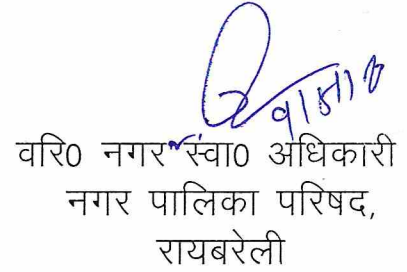 वरि0 नगर स्वा0 अधिकारी
नगर पालिका परिषद,
रायबरेली